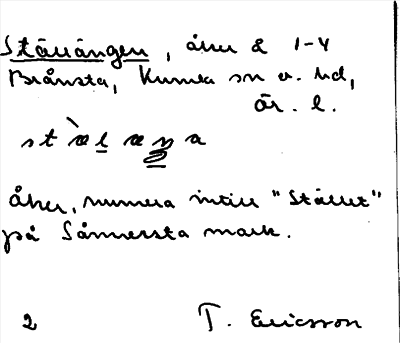 Ställängen, åker å 1-4
Brånsta, Kumla sn o. hd,
Är. l.
stæ̀læŋa
Åker, numera intill "Stället"
på Sånnersta mark.
2 T. Ericsson